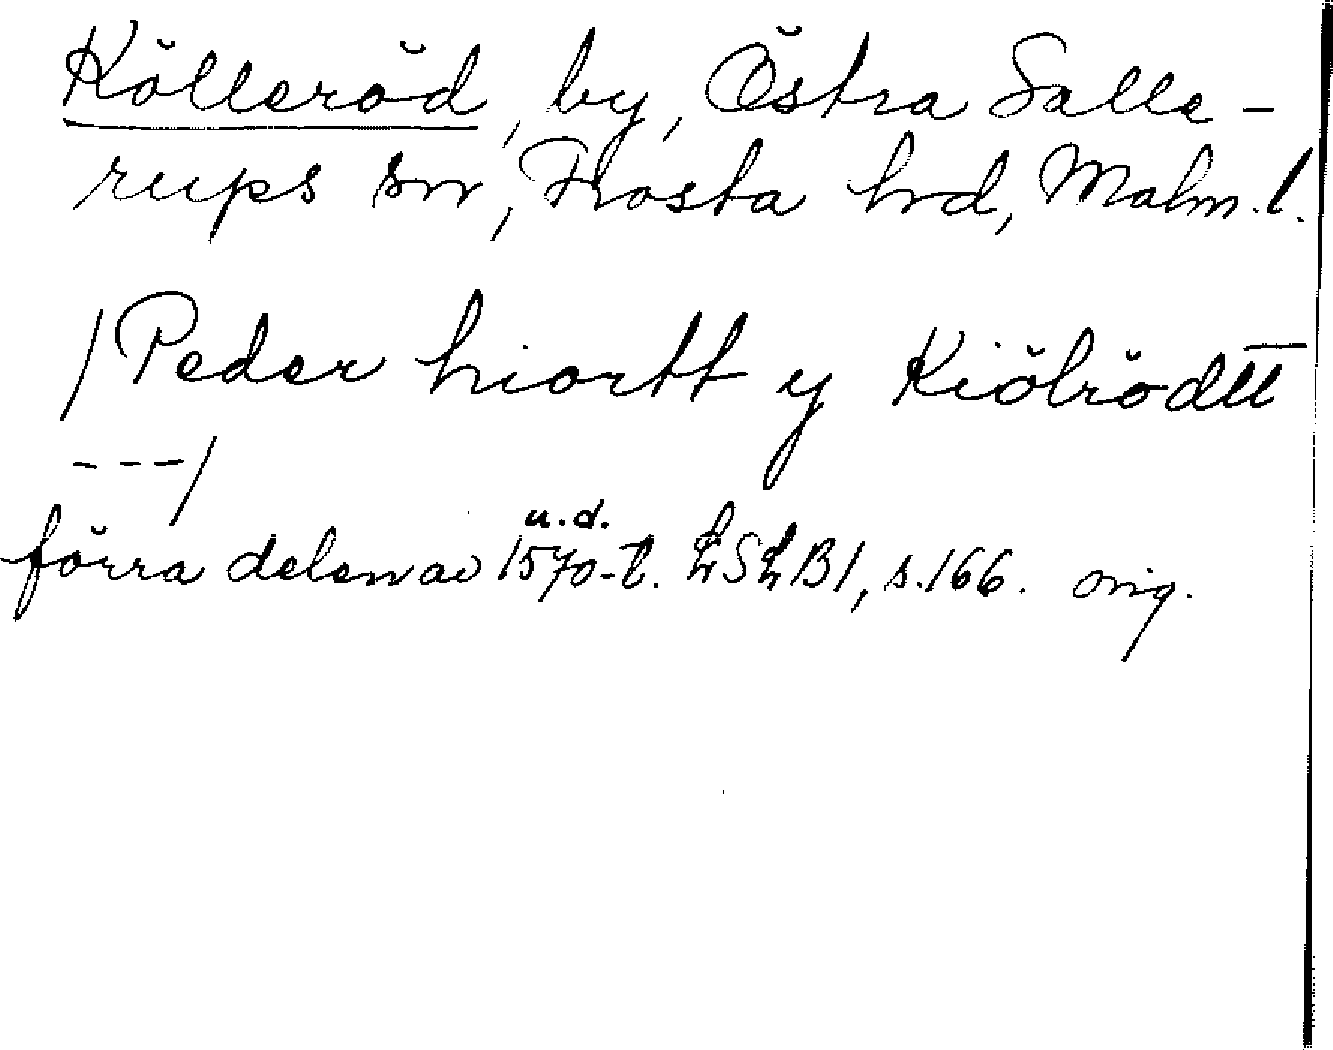 Kölleröd, by, Östra Salle-
rups sn, Frosta hd, Malm. l.
/Peder hiortt y Kiölrödtt
---/
förra delen av 1570-t. u.d. LSLB1, s.166. orig.